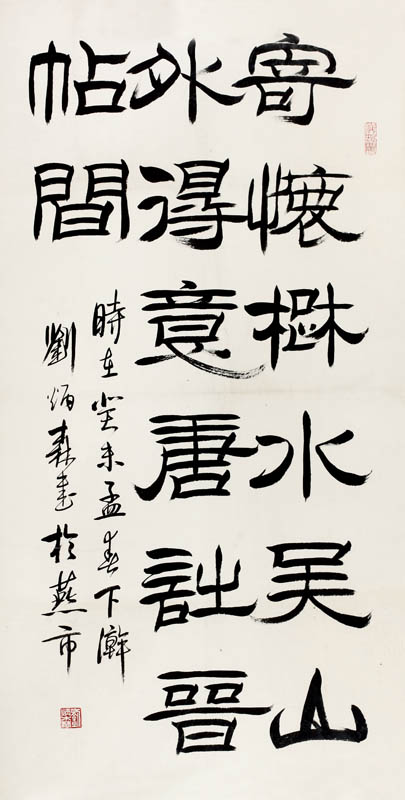 寄懷楚水吴山
外得意唐詩晉
帖間
時在癸未孟春下澣
劉炳森書於燕市